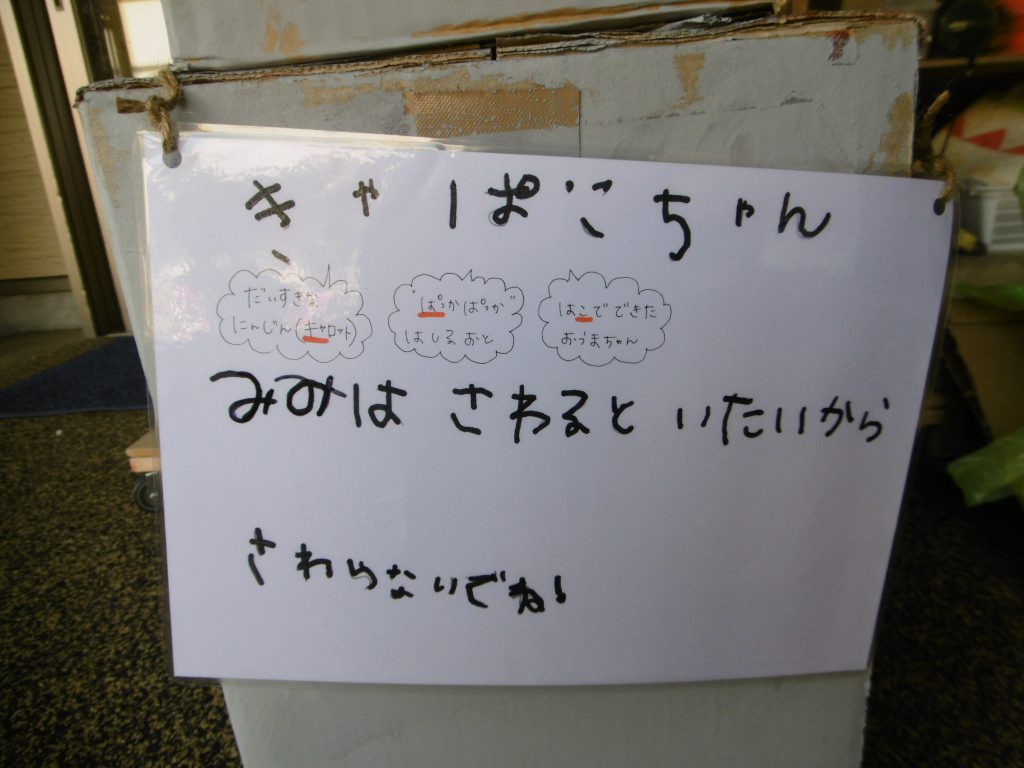 きゃーぱこちゃん
だいすきな
にんじん(キャロット)
"ぱっかぱっか"
はしるおと
はこでできた
おうまちゃん
みみは さわると いたいから
さわらないでね!